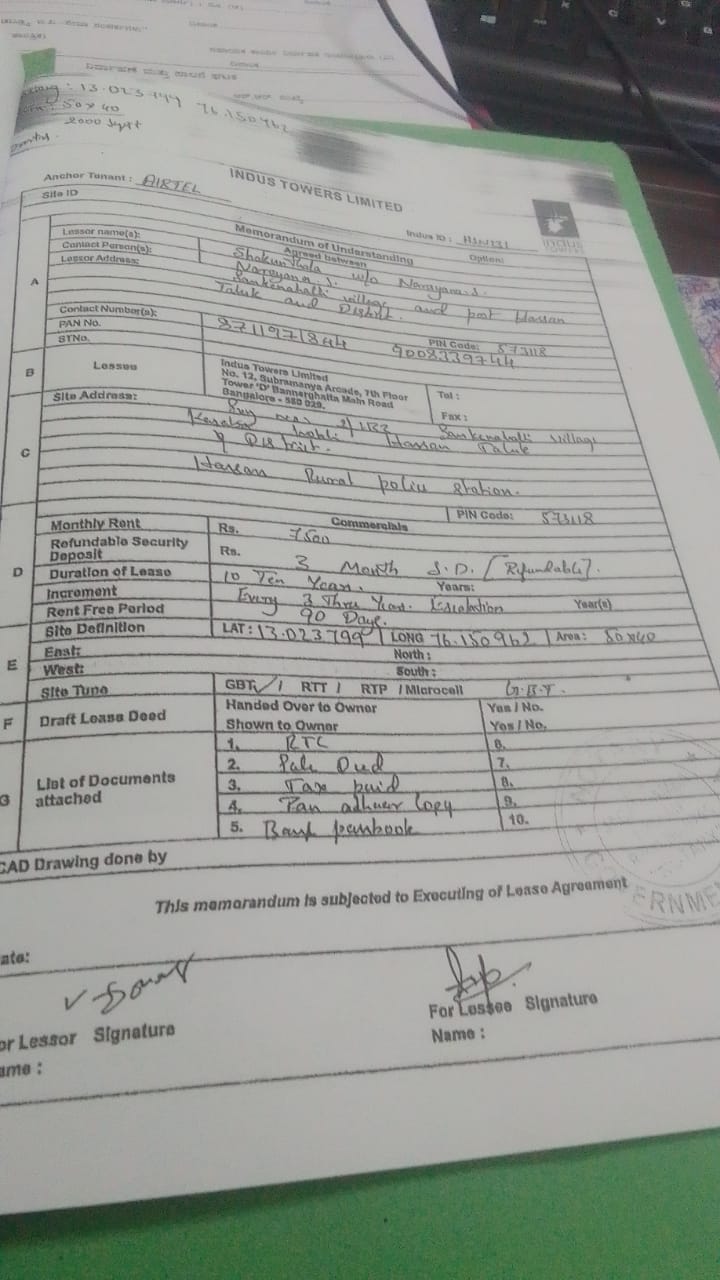 : 13.023799 76.150962
50 x 40
2000 Sqft
INDUS TOWERS LIMITED
Anchor Tenant : AIRTEL
Site ID
Indus ID :
INDUS
TOWERS
Memorandum of Understanding
Agreed between
Option:
A
Lessor name(s):
Contact Person(s):
Lessor Address:
Shakunthala w/o Narayana.S.
Narayana.S.
Bankenahalli village and post Hassan
Taluk and District.
Contact Number(s):
8711971844 9008339744
PIN Code: 573118
PAN No.
STNo.
B
Lessee
Indus Towers Limited
No. 12, Subramanya Arcade, 7th Floor
Tower 'D' Bannerghatta Main Road
Bangalore - 560 029.
Tel :
Fax :
C
Site Address:
Bankenahalli village
Hassan Taluk
& District.
Hassan Rural police station.
PIN Code: 573118
D
Commercials
Monthly Rent Rs. 7500
Refundable Security
Deposit Rs. 3 Month S.D. [Refundable].
Duration of Lease 10 Ten Years. Years:
Increment Every 3 Three Years. Escalation Year(s)
Rent Free Period 90 Days.
E
Site Definition LAT: 13.023799 LONG 76.150962 Area: 50x40
East: North :
West: South :
Site Type GBT / RTT / RTP / Microcell G.B.T.
F
Draft Lease Deed
Handed Over to Owner Yes / No.
Shown to Owner Yes / No.
G
List of Documents
attached
1. RTC 6.
2. 7.
3. Tax paid 8.
4. Pan Copy 9.
5. Bank passbook 10.
CAD Drawing done by
This memorandum is subjected to Executing of Lease Agreement
ERNME
ate:
or Lessor Signature
ame :
For Lessee Signature
Name :